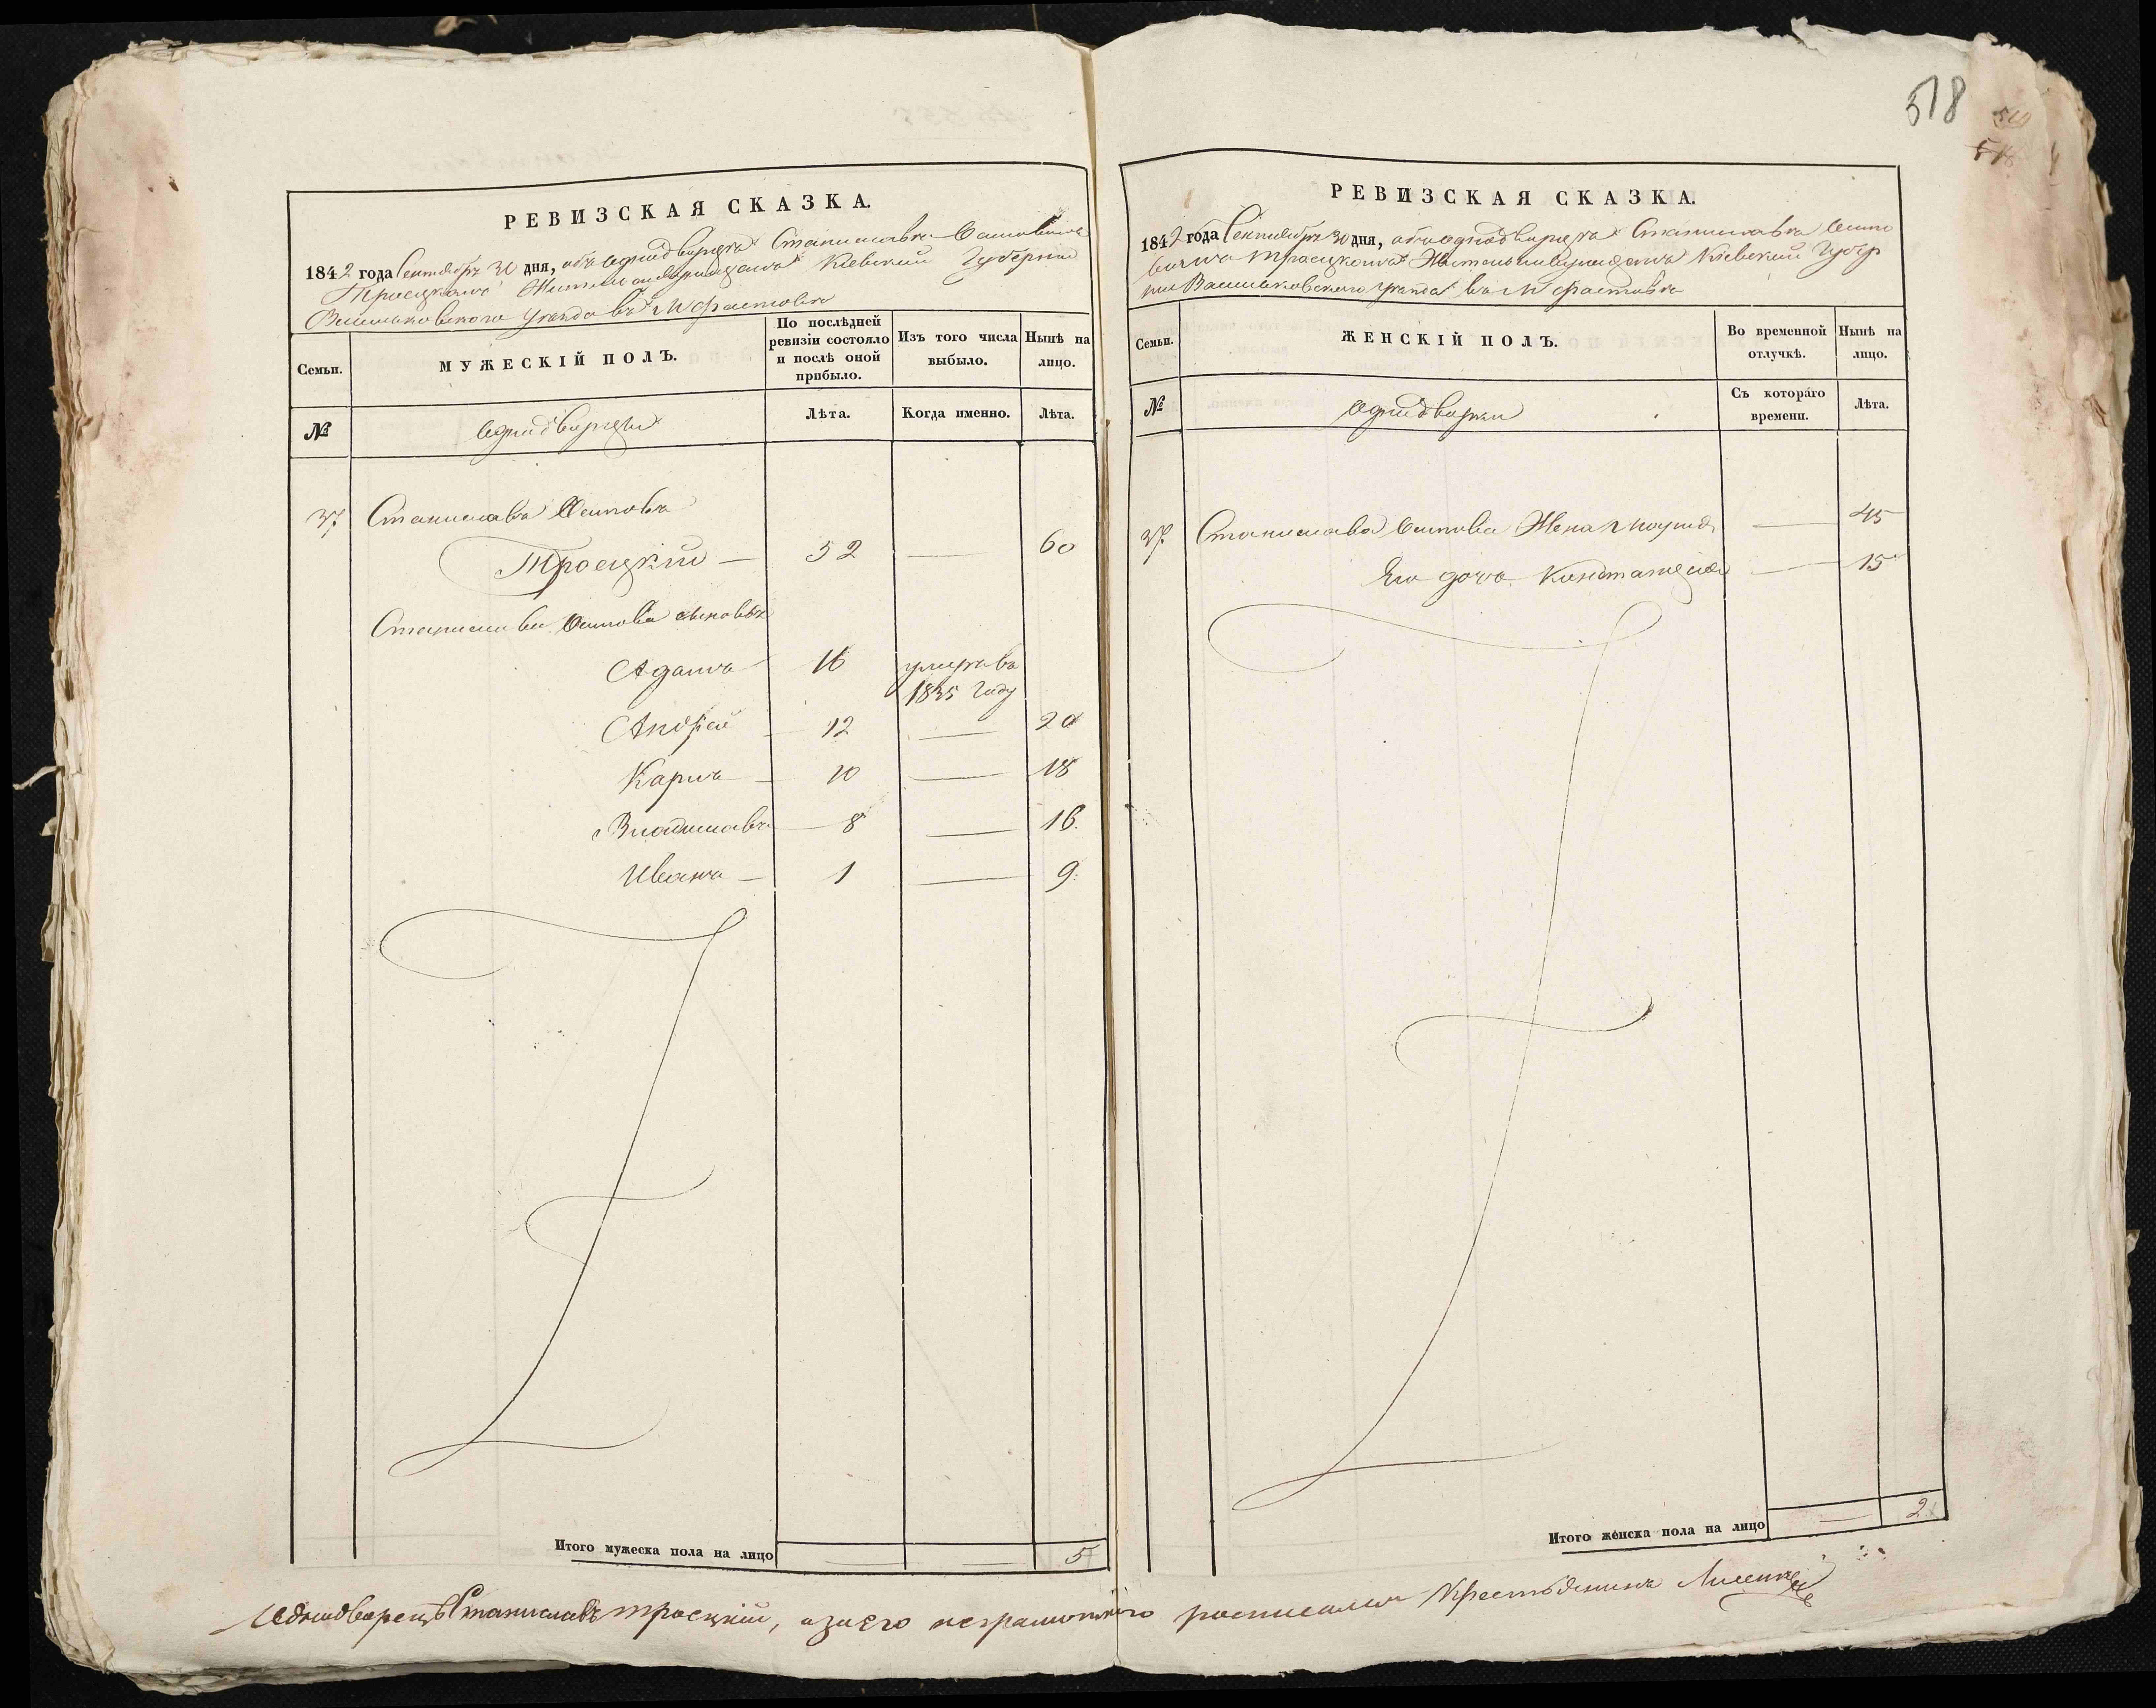 518
РЕВИЗСКАЯ СКАЗКА.
1842 года Сентября 30 дня, объ однодворцѣ Станиславѣ Осиповичѣ
Троецкомъ Жительствующемъ Кіевской Губерніи
Васильковского уѣзда въ М Фастовѣ
Семьи.
МУЖЕСКІЙ ПОЛЪ.
По послѣдней ревизіи состояло и послѣ оной прибыло.
Изъ того числа выбыло.
Нынѣ на лицо.
№
Однодворцы
Лѣта.
Когда именно.
Лѣта.
37 Станиславъ Осиповъ
Троецкій — 52 — 60
Станислава Осипова сыновья
Адамъ 16 умеръ въ
1835 Году
Андрей — 12 — 20
Карлъ — 10 — 18
Владиславъ — 8 — 16.
Иванъ — 1 — 9.
Итого мужеска пола на лицо — — 5
РЕВИЗСКАЯ СКАЗКА.
1842 года Сентября 30 дня, объ однодворцѣ Станиславѣ Осипо
вичѣ Троецкомъ Жительствующемъ Кіевской Губер
ніи Васильковского уѣзда въ М Фастовѣ
Семьи.
ЖЕНСКІЙ ПОЛЪ.
Во временной отлучкѣ.
Нынѣ на лицо.
№
Однодворки
Съ котораго времени.
Лѣта.
37. Станислава Осипова Жена — 45
Его дочь Констанція — 15
Итого женска пола на лицо — 2
Однодворецъ Станиславъ Троецкій, а за его неграмотного росписался Крестьянинъ